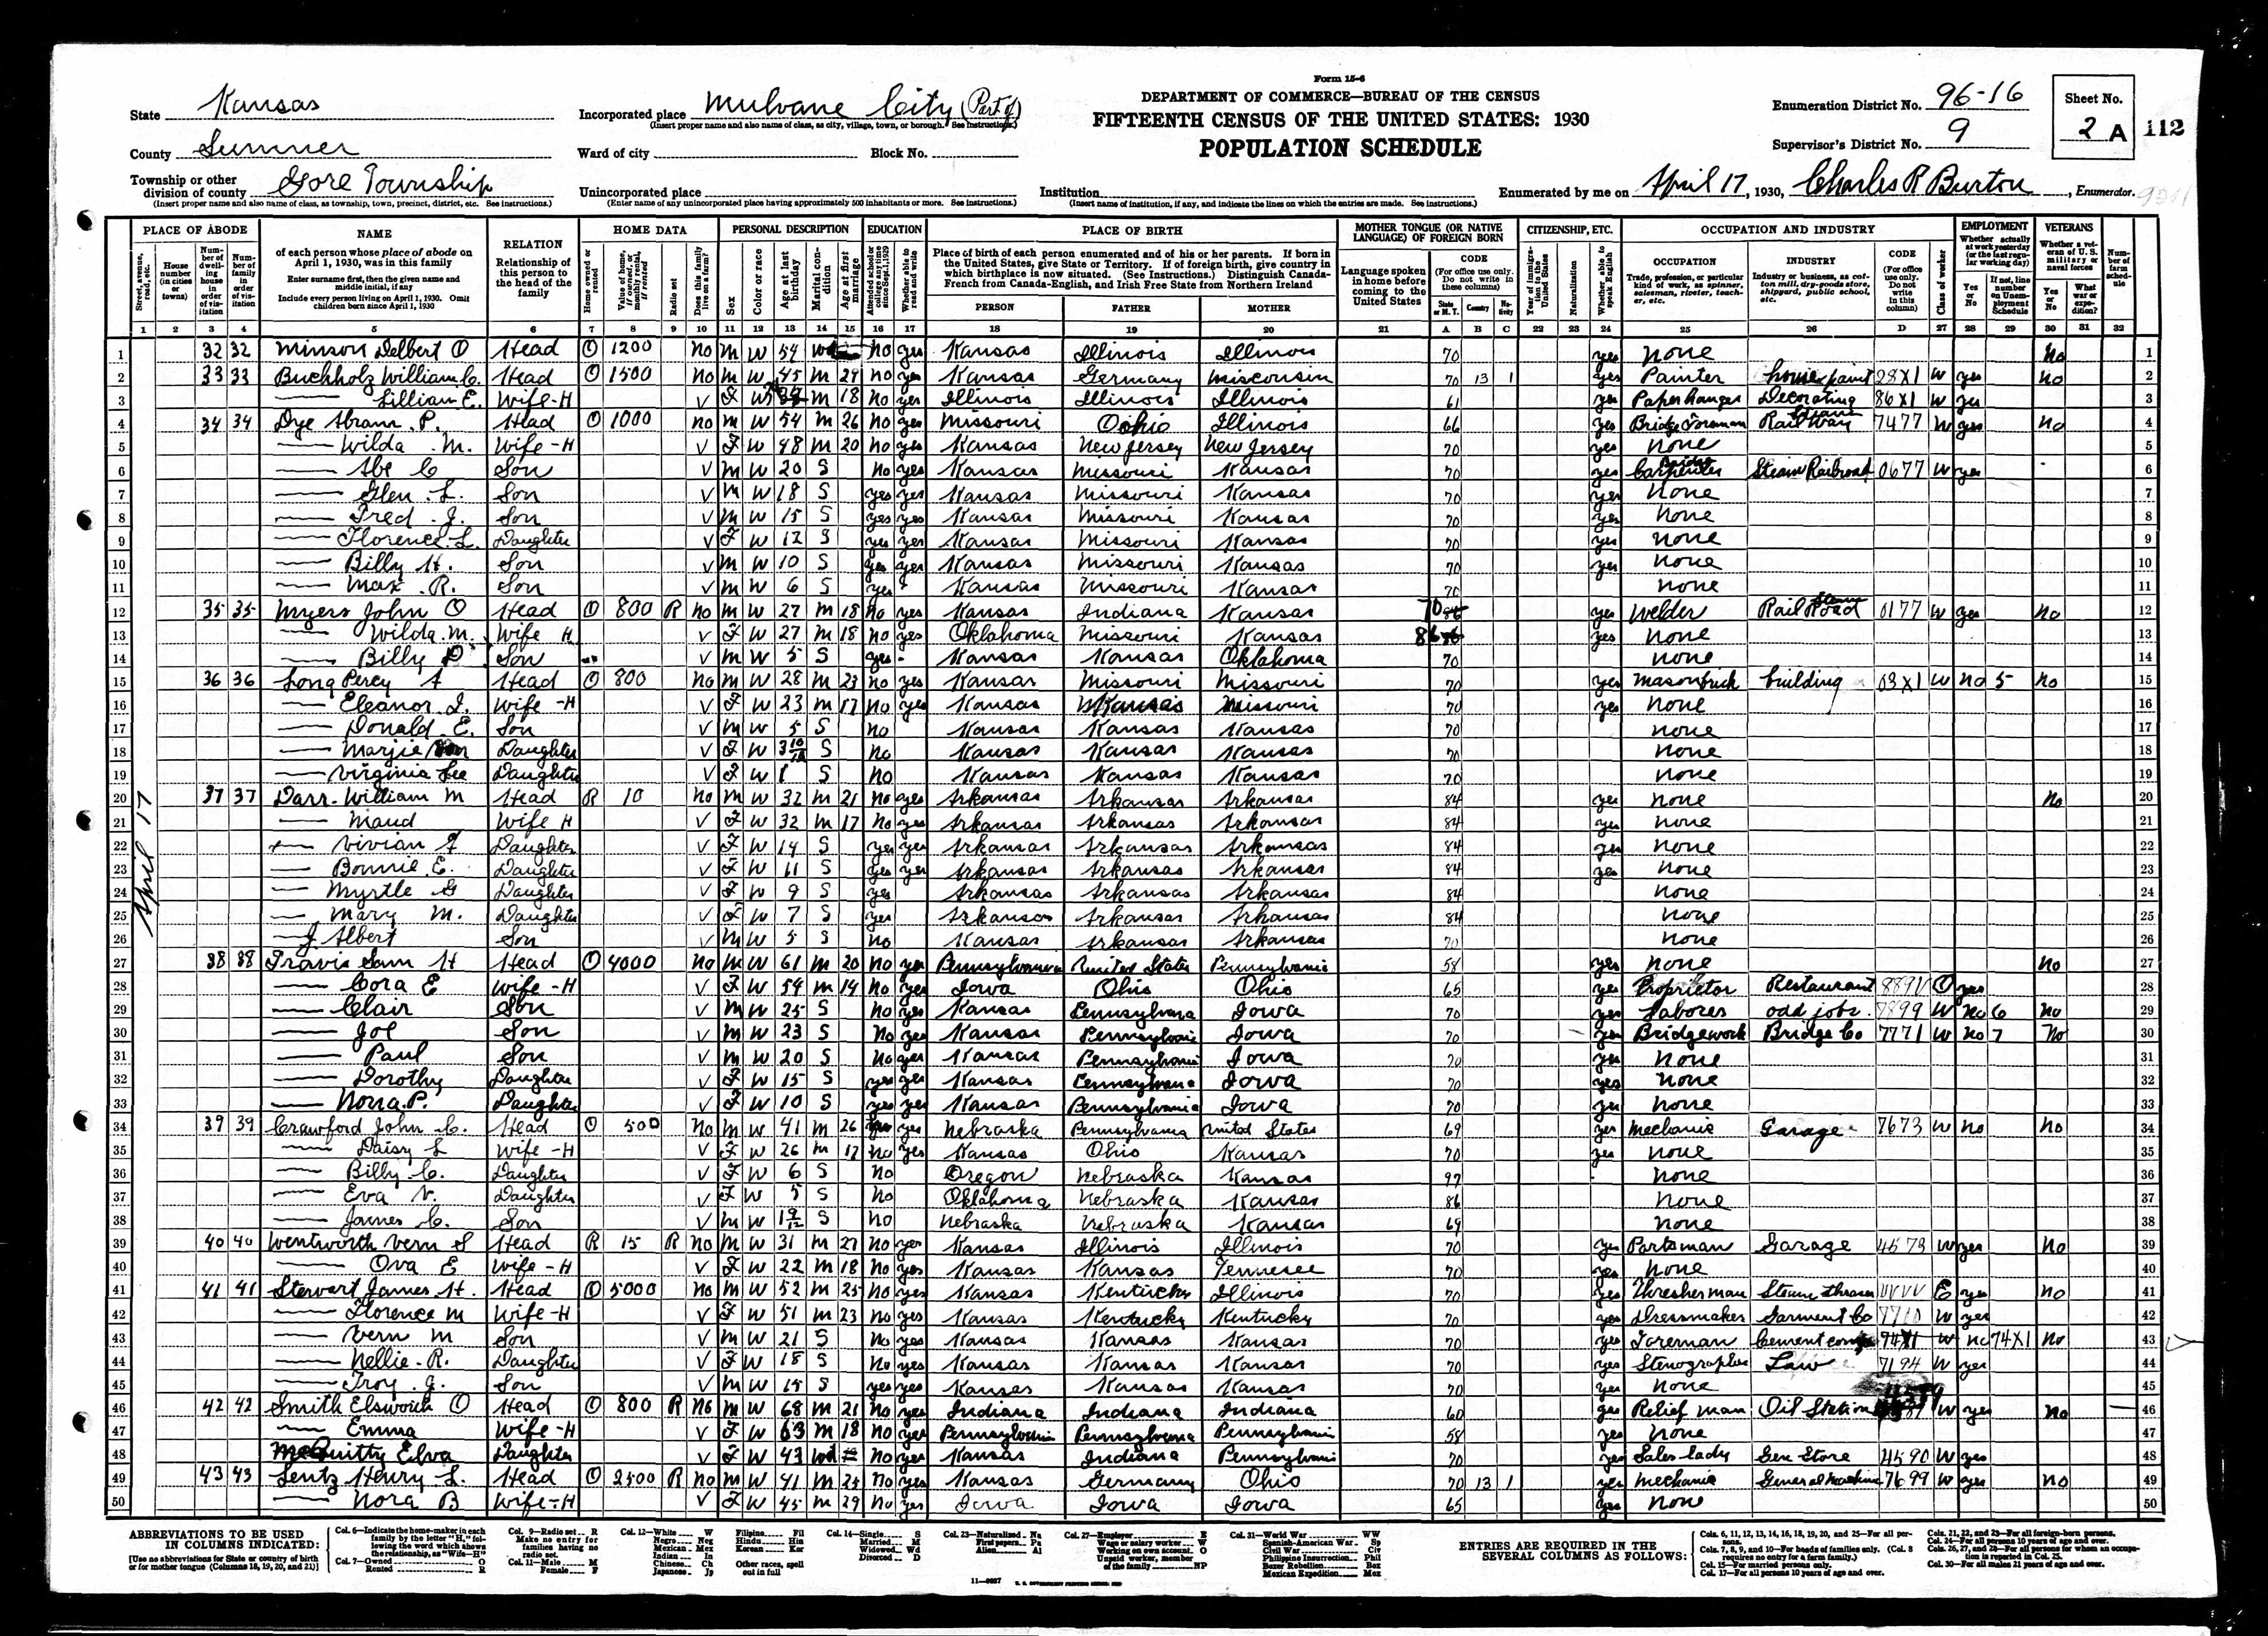 Form 15-6
State Kansas
Incorporated place Mulvane City (Part of)
(Insert proper name and also name of class, as city, village, town, or borough. See instructions.)
DEPARTMENT OF COMMERCE—BUREAU OF THE CENSUS
FIFTEENTH CENSUS OF THE UNITED STATES: 1930
POPULATION SCHEDULE
Enumeration District No. 96-16
Supervisor's District No. 9
Sheet No. 2 A
112
County Sumner
Ward of city Block No.
Township or other division of county Gore Township
(Insert proper name and also name of class, as township, town, precinct, district, etc. See instructions.)
Unincorporated place
(Enter name of any unincorporated place having approximately 500 inhabitants or more. See instructions.)
Institution
(Insert name of institution, if any, and indicate the lines on which the entries are made. See instructions.)
Enumerated by me on April 17, 1930, Charles R Burton, Enumerator.
PLACE OF ABODE NAME RELATION HOME DATA PERSONAL DESCRIPTION EDUCATION PLACE OF BIRTH MOTHER TONGUE (OR NATIVE LANGUAGE) OF FOREIGN BORN CITIZENSHIP, ETC. OCCUPATION AND INDUSTRY EMPLOYMENT VETERANS
1 2 3 4 5 6 7 8 9 10 11 12 13 14 15 16 17 18 19 20 21 A B C 22 23 24 25 26 D 27 28 29 30 31 32
April 17
1 32 32 Minson Delbert O Head O 1200 No M W 54 Wd No yes Kansas Illinois Illinois 70 yes None No 1
2 33 33 Buchholz William C. Head O 1500 No M W 45 M 29 No yes Kansas Germany Wisconsin 70 13 1 yes Painter house paint 28X1 W yes No 2
3 Lillian E. Wife-H V F W M 18 No yes Illinois Illinois Illinois 61 yes Paperhanger Decorating 86X1 W yes 3
4 34 34 Dye Abram P. Head O 1000 No M W 54 M 26 No yes Missouri Oohio Illinois 66 yes Bridge Foreman Steam Railway 7477 W yes No 4
5 Wilda M. Wife-H V F W 48 M 20 No yes Kansas New Jersey New Jersey 70 yes None 5
6 Abe C Son V M W 20 S No yes Kansas Missouri Kansas 70 yes Bridge Carpenter Steam Railroad 0677 W yes 6
7 Glen L. Son V M W 18 S yes yes Kansas Missouri Kansas 70 yes None 7
8 Fred J. Son V M W 15 S yes yes Kansas Missouri Kansas 70 yes None 8
9 Florence L. Daughter V F W 12 S yes yes Kansas Missouri Kansas 70 yes None 9
10 Billy H. Son V M W 10 S yes yes Kansas Missouri Kansas 70 yes None 10
11 Max R. Son V M W 6 S yes Kansas Missouri Kansas 70 None 11
12 35 35 Myers John O Head O 800 R No M W 27 M 18 No yes Kansas Indiana Kansas 70 yes Welder Steam Rail Road 0177 W yes No 12
13 Wilda M. Wife H V F W 27 M 18 No yes Oklahoma Missouri Kansas 86 yes None 13
14 Billy D Son V M W 5 S yes Kansas Kansas Oklahoma 70 None 14
15 36 36 Long Percy A Head O 800 No M W 28 M 23 No yes Kansas Missouri Missouri 70 yes Mason brick building 03X1 W No 5 No 15
16 Eleanor I. Wife-H V F W 23 M 17 No yes Kansas Kansas Missouri 70 yes None 16
17 Donald E. Son V M W 5 S No Kansas Kansas Kansas 70 None 17
18 Marjie Daughter V F W 3 10/12 S No Kansas Kansas Kansas 70 None 18
19 Virginia Lee Daughter V F W 1 S No Kansas Kansas Kansas 70 None 19
20 37 37 Darr William M Head R 10 No M W 32 M 21 No yes Arkansas Arkansas Arkansas 84 yes None No 20
21 Maud Wife H V F W 32 M 17 No yes Arkansas Arkansas Arkansas 84 yes None 21
22 Vivian F Daughter V F W 14 S yes yes Arkansas Arkansas Arkansas 84 yes None 22
23 Bonnie E. Daughter V F W 11 S yes yes Arkansas Arkansas Arkansas 84 yes None 23
24 Myrtle G Daughter V F W 9 S yes Arkansas Arkansas Arkansas 84 None 24
25 Mary M. Daughter V F W 7 S yes Arkansas Arkansas Arkansas 84 None 25
26 J. Albert Son V M W 5 S No Kansas Arkansas Arkansas 70 None 26
27 38 38 Travis Sam H Head O 4000 No M W 61 M 20 No yes Pennsylvania United States Pennsylvania 58 yes None No 27
28 Cora E Wife-H V F W 54 M 14 No yes Iowa Ohio Ohio 65 yes Proprietor Restaurant 8891 O yes 28
29 Clair Son V M W 25 S No yes Kansas Pennsylvana Iowa 70 yes Laborer odd jobs 7899 W No 6 No 29
30 Joe Son V M W 23 S No yes Kansas Pennsylvania Iowa 70 yes Bridgework Bridge Co 7771 W No 7 No 30
31 Paul Son V M W 20 S No yes Kansas Pennsylvania Iowa 70 yes None 31
32 Dorothy Daughter V F W 15 S yes yes Kansas Pennsylvana Iowa 70 yes None 32
33 Nona P. Daughter V F W 10 S yes yes Kansas Pennsylvania Iowa 70 yes None 33
34 39 39 Crawford John C. Head O 500 No M W 41 M 26 yes Nebraska Pennsylvania United States 69 yes Mechanic Garage 7673 W No No 34
35 Daisy L Wife-H V F W 26 M 17 No yes Kansas Ohio Kansas 70 yes None 35
36 Billy C. Daughter V F W 6 S No Oregon Nebraska Kansas 97 None 36
37 Eva V. Daughter V F W 5 S No Oklahoma Nebraska Kansas 86 None 37
38 James C. Son V M W 1 9/12 S No Nebraska Nebraska Kansas 69 None 38
39 40 40 Wentworth Vern S Head R 15 R No M W 31 M 27 No yes Kansas Illinois Illinois 70 yes Partsman Garage 4573 W yes No 39
40 Ova E Wife-H V F W 22 M 18 No yes Kansas Kansas Tennesee 70 yes None 40
41 41 41 Stewart James H. Head O 5000 No M W 52 M 25 No yes Kansas Kentucky Illinois 70 yes Thresherman Steam thresh VVVV E yes No 41
42 Florence M Wife-H V F W 51 M 23 No yes Kansas Kentucky Kentucky 70 yes Dressmaker Garment Co 7710 W yes 42
43 Vern M Son V M W 21 S No yes Kansas Kansas Kansas 70 yes Foreman Cement 74X1 W No 74X1 No 43
44 Nellie R. Daughter V F W 18 S No yes Kansas Kansas Kansas 70 yes Stenographer Law 7194 W yes 44
45 Troy J. Son V M W 15 S yes yes Kansas Kansas Kansas 70 yes None 45
46 42 42 Smith Elsworth O Head O 800 R No M W 68 M 21 No yes Indiana Indiana Indiana 60 yes Relief man Oil Station W yes No 46
47 Emma Wife-H V F W 63 M 18 No yes Pennsylvania Pennsylvania Pennsylvania 58 yes None 47
48 McQuitty Elva Daughter V F W 43 Wd No yes Kansas Indiana Pennsylvania 70 yes Saleslady Gen Store 4590 W yes 48
49 43 43 Lentz Henry L. Head O 2500 R No M W 41 M 25 No yes Kansas Germany Ohio 70 13 1 yes Mechanic General Machine 7699 W yes No 49
50 Nora B Wife-H V F W 45 M 29 No yes Iowa Iowa Iowa 65 yes None 50
ABBREVIATIONS TO BE USED IN COLUMNS INDICATED:
[Use no abbreviations for State or country of birth or for mother tongue (Columns 18, 19, 20, and 21)]
ENTRIES ARE REQUIRED IN THE SEVERAL COLUMNS AS FOLLOWS: